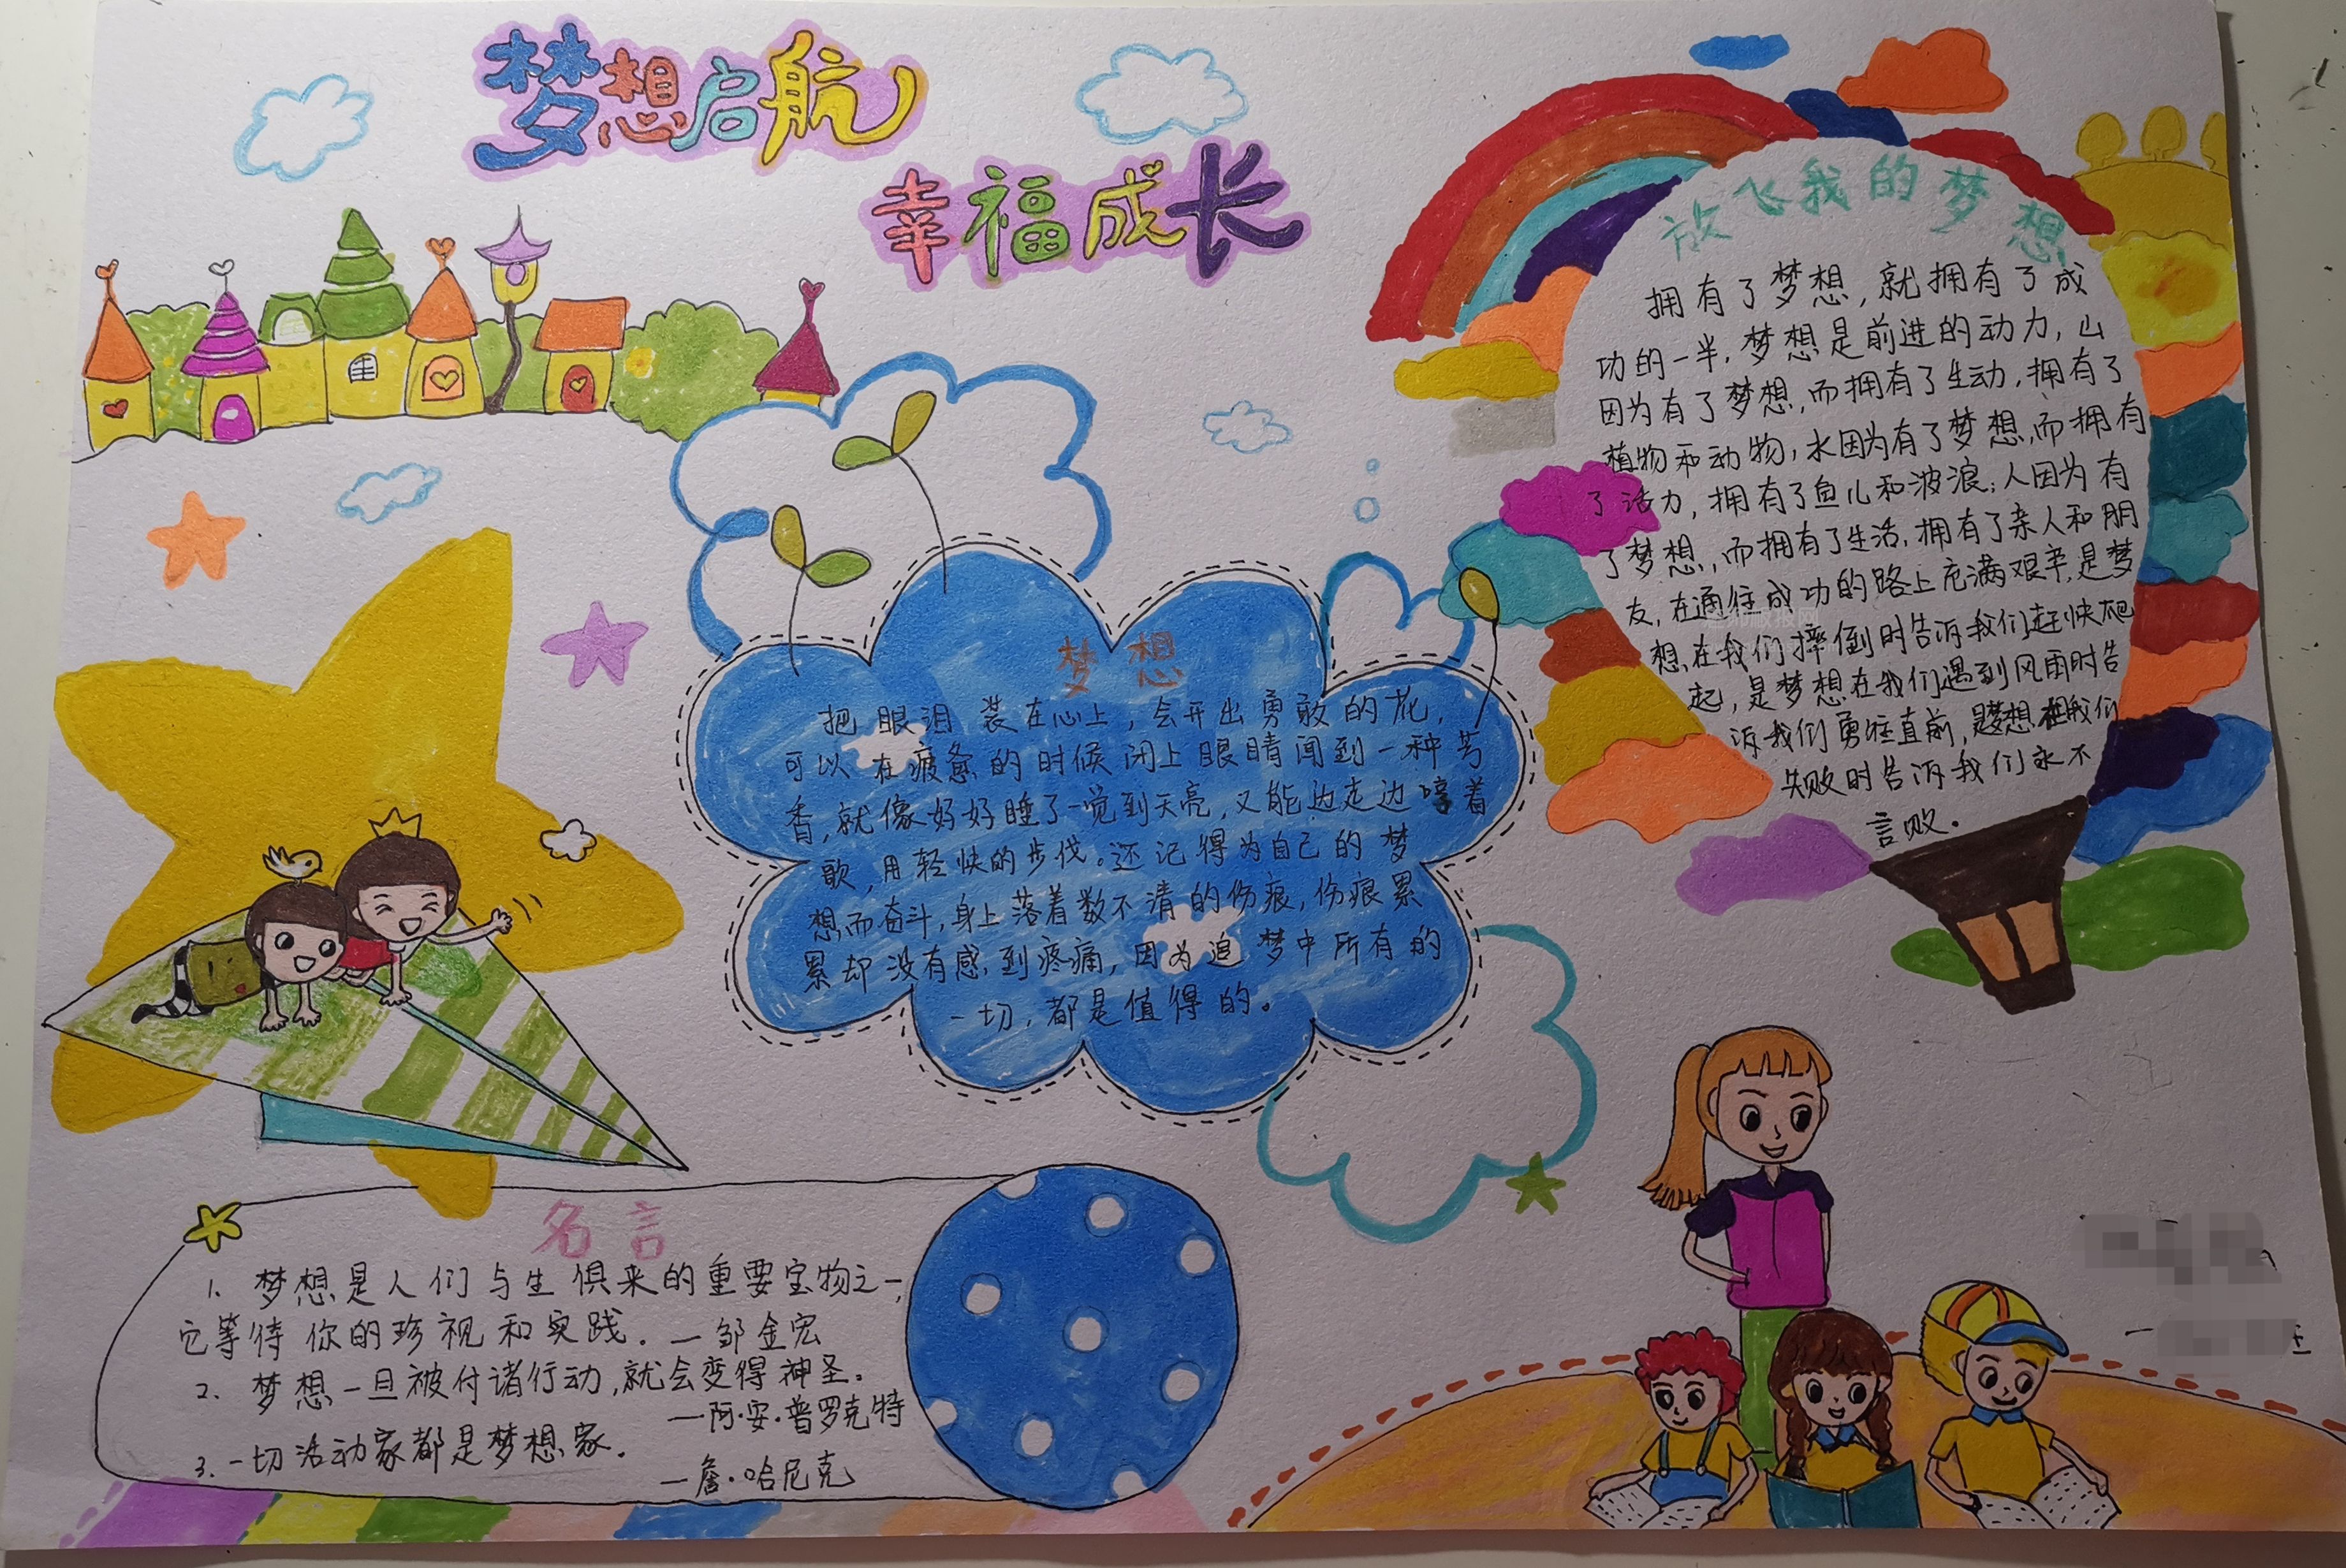 梦想启航
幸福成长
放飞我的梦想
拥有了梦想,就拥有了成
功的一半,梦想是前进的动力,山
因为有了梦想,而拥有了生动,拥有了
植物和动物,水因为有了梦想,而拥有
了活力,拥有了鱼儿和波浪;人因为有
了梦想,而拥有了生活,拥有了亲人和朋
友,在通往成功的路上充满艰辛,是梦
想在我们摔倒时告诉我们赶快爬
起,是梦想在我们遇到风雨时告
诉我们勇往直前,是梦想在我们
失败时告诉我们永不
言败。
梦想
把眼泪装在心上,会开出勇敢的花,
可以在疲惫的时候闭上眼睛闻到一种芳
香,就像好好睡了一觉到天亮,又能边走边哼着
歌,用轻快的步伐。还记得为自己的梦
想而奋斗,身上落着数不清的伤痕,伤痕累
累却没有感到疼痛,因为追梦中所有的
一切,都是值得的。
名言
1、梦想是人们与生俱来的重要宝物之一,
它等待你的珍视和实践.一邹金宏
2、梦想一旦被付诸行动,就会变得神圣。
一阿·安·普罗克特
3、一切活动家都是梦想家.
一詹·哈尼克